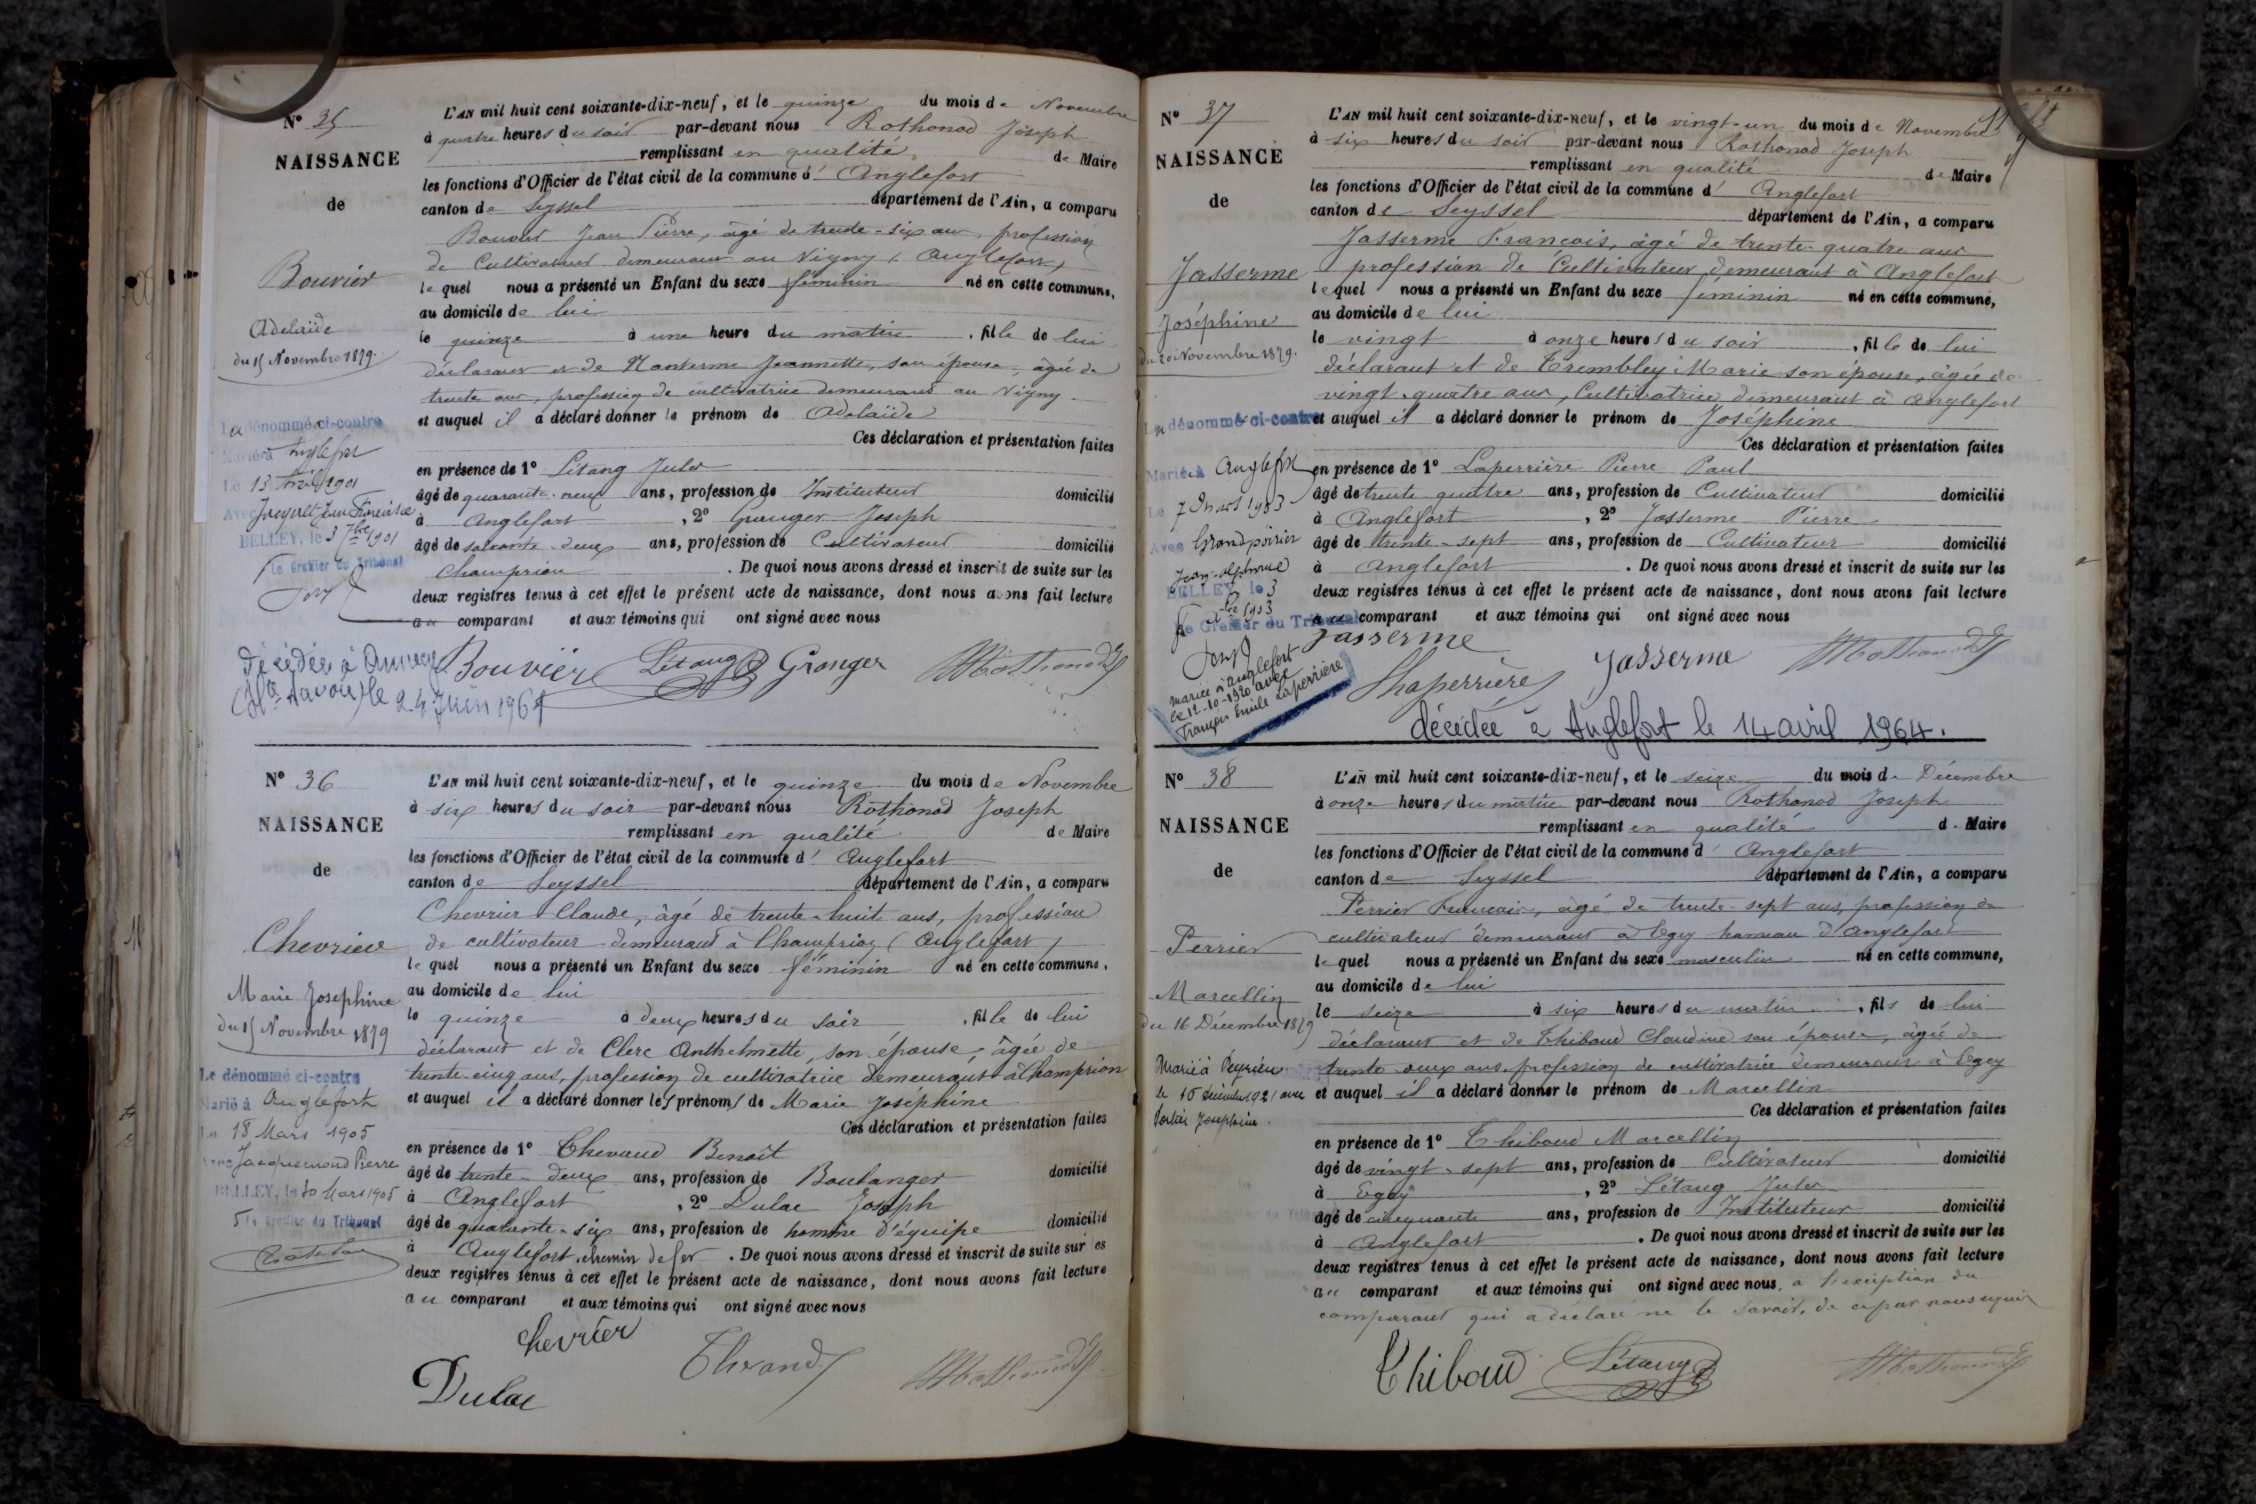 N° 35
NAISSANCE
de
Bouvier
Adelaïde
du 15 Novembre 1879.
La dénommé ci-contre
Marié à Anglefort
Le 13 avril 1901
Avec Jean François
BELLEY, le 3 7bre 1901
Le Greffier du Tribunal
L'AN mil huit cent soixante-dix-neuf, et le quinze du mois de Novembre
à quatre heures du soir par-devant nous Rothonod Joseph
remplissant en qualité de Maire
les fonctions d'Officier de l'état civil de la commune d' Anglefort
canton de Seyssel département de l'Ain, a comparu
Bouvier Jean Pierre, âgé de trente-six ans, profession
de Cultivateur demeurant au Vigny (Anglefort)
lequel nous a présenté un Enfant du sexe féminin né en cette commune,
au domicile de lui
le quinze à une heure du matin, fille de lui
déclarant et de Jeannette, son épouse, âgée de
trente ans, profession de cultivatrice demeurant au Vigny
et auquel il a déclaré donner le prénom de Adelaïde
Ces déclaration et présentation faites
en présence de 1° Létang Jules
âgé de quarante-neuf ans, profession de Instituteur domicilié
à Anglefort, 2° Granger Joseph
âgé de soixante-deux ans, profession de Cultivateur domicilié
Champrion. De quoi nous avons dressé et inscrit de suite sur les
deux registres tenus à cet effet le présent acte de naissance, dont nous avons fait lecture
au comparant et aux témoins qui ont signé avec nous
Bouvier Létang Granger Rothonod
Décédée à Annecy
(Hte Savoie) le 24 Juin 1961
N° 36
NAISSANCE
de
Chevrier
Marie Josephine
du 15 Novembre 1879
Le dénommé ci-contre
Marié à Anglefort
Le 18 Mars 1905
Avec Jacquemond Pierre
BELLEY, le 30 Mars 1905
Le Greffier du Tribunal
L'AN mil huit cent soixante-dix-neuf, et le quinze du mois de Novembre
à six heures du soir par-devant nous Rothonod Joseph
remplissant en qualité de Maire
les fonctions d'Officier de l'état civil de la commune d' Anglefort
canton de Seyssel département de l'Ain, a comparu
Chevrier Claude, âgé de trente-huit ans, profession
de cultivateur demeurant à Champrion (Anglefort)
lequel nous a présenté un Enfant du sexe féminin né en cette commune,
au domicile de lui
le quinze à deux heures du soir, fille de lui
déclarant et de Clerc Anthelmette, son épouse, âgée de
trente-cinq ans, profession de cultivatrice demeurant à Champrion
et auquel il a déclaré donner les prénoms de Marie Josephine
Ces déclaration et présentation faites
en présence de 1° Thevand Benoît
âgé de trente-deux ans, profession de Boulanger domicilié
à Anglefort, 2° Dulac Joseph
âgé de quarante-six ans, profession de homme d'équipe domicilié
à Anglefort, chemin de fer. De quoi nous avons dressé et inscrit de suite sur les
deux registres tenus à cet effet le présent acte de naissance, dont nous avons fait lecture
au comparant et aux témoins qui ont signé avec nous
chevrier Thevand Rothonod
Dulac
N° 37
NAISSANCE
de
Jasserme
Joséphine
du 20 Novembre 1879.
La dénommé ci-contre
Mariée à Anglefort
Le 7 Mars 1903
Avec Grandpoirier
Jean
BELLEY, le 3
1903
Le Greffier du Tribunal
mariée à Anglefort
le 12-10-1920 avec
François Emile Laperrière
L'AN mil huit cent soixante-dix-neuf, et le vingt-un du mois de Novembre
à six heures du soir par-devant nous Rothonod Joseph
remplissant en qualité de Maire
les fonctions d'Officier de l'état civil de la commune d' Anglefort
canton de Seyssel département de l'Ain, a comparu
Jasserme François, âgé de trente-quatre ans
profession de Cultivateur, demeurant à Anglefort
lequel nous a présenté un Enfant du sexe féminin né en cette commune,
au domicile de lui
le vingt à onze heures du soir, fille de lui
déclarant et de Trembley Marie son épouse, âgée de
vingt-quatre ans, Cultivatrice demeurant à Anglefort
et auquel il a déclaré donner le prénom de Joséphine
Ces déclaration et présentation faites
en présence de 1° Laperrière Pierre Paul
âgé de trente-quatre ans, profession de Cultivateur domicilié
à Anglefort, 2° Jasserme Pierre
âgé de trente-sept ans, profession de Cultivateur domicilié
à Anglefort. De quoi nous avons dressé et inscrit de suite sur les
deux registres tenus à cet effet le présent acte de naissance, dont nous avons fait lecture
au comparant et aux témoins qui ont signé avec nous
Jasserme
Laperrière Jasserme Rothonod
décédée à Anglefort le 14 avril 1964.
N° 38
NAISSANCE
de
Perrier
Marcellin
du 16 Décembre 1879
Marié à Peyrieu
le 15 décembre 1921 avec
Joséphine.
L'AN mil huit cent soixante-dix-neuf, et le seize du mois de Décembre
à onze heures du matin par-devant nous Rothonod Joseph
remplissant en qualité de Maire
les fonctions d'Officier de l'état civil de la commune d' Anglefort
canton de Seyssel département de l'Ain, a comparu
Perrier François, âgé de trente-sept ans, profession de
cultivateur demeurant à Egey hameau d'Anglefort
lequel nous a présenté un Enfant du sexe masculin né en cette commune,
au domicile de lui
le seize à six heures du matin, fils de lui
déclarant et de Thiboud Claudine son épouse, âgée de
trente-deux ans profession de cultivatrice demeurant à Egey
et auquel il a déclaré donner le prénom de Marcellin
Ces déclaration et présentation faites
en présence de 1° Thiboud Marcellin
âgé de vingt-sept ans, profession de Cultivateur domicilié
à Egey, 2° Létang Jules
âgé de cinquante ans, profession de Instituteur domicilié
à Anglefort. De quoi nous avons dressé et inscrit de suite sur les
deux registres tenus à cet effet le présent acte de naissance, dont nous avons fait lecture
au comparant et aux témoins qui ont signé avec nous, à l'exception du
comparant qui a déclaré ne le savoir, de ce par nous requis
Thiboud Létang Rothonod